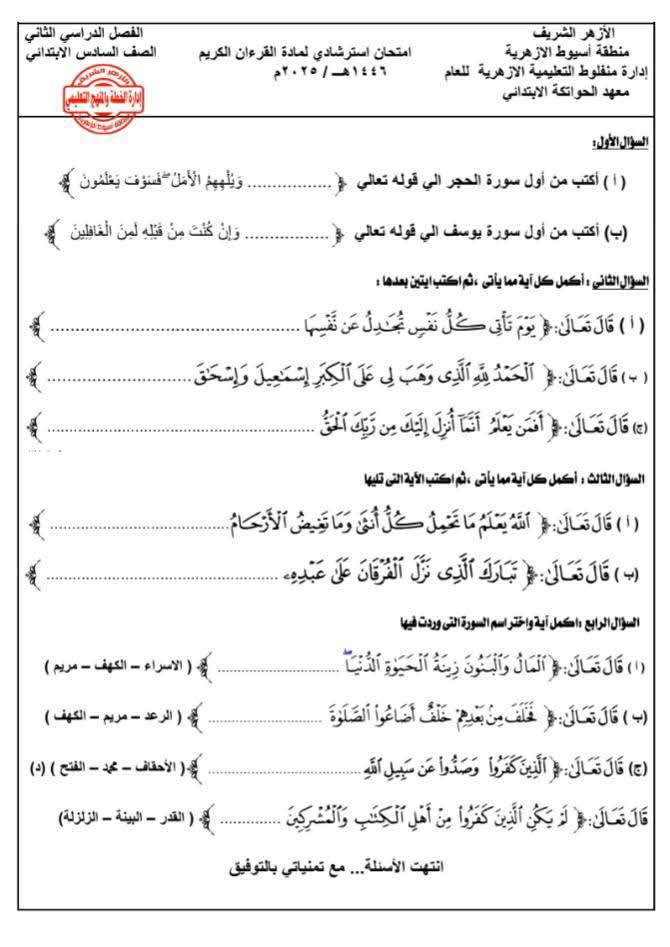 الأزهر الشريف
منطقة أسيوط الازهرية
إدارة منفلوط التعليمية الازهرية للعام
معهد الحواتكة الابتدائي
امتحان استرشادي لمادة القرءان الكريم
١٤٤٦هـــ / ٢٠٢٥م
الفصل الدراسي الثاني
الصف السادس الابتدائي
الأزهر الشريف
إدارة الخطة والمنهج التعليمي
السؤال الأول:
( أ ) أكتب من أول سورة الحجر الي قوله تعالي ﴿ ................. وَيُلْهِهِمُ الْأَمَلُ ۖ فَسَوْفَ يَعْلَمُونَ ﴾
(ب) أكتب من أول سورة يوسف الي قوله تعالي ﴿ ................. وَإِن كُنْتَ مِنْ قَبْلِهِ لَمِنَ الْغَافِلِينَ ﴾
السؤال الثانى : أكمل كل آية مما يأتى ، ثم اكتب ايتين بعدها :
( أ ) قَالَ تَعَالَىٰ: ﴿ يَوْمَ تَأْتِى كُلُّ نَفْسٍ تُجَٰدِلُ عَن نَّفْسِهَا ................................................ ﴾
( ب ) قَالَ تَعَالَىٰ: ﴿ ٱلْحَمْدُ لِلَّهِ ٱلَّذِى وَهَبَ لِى عَلَى ٱلْكِبَرِ إِسْمَٰعِيلَ وَإِسْحَٰقَ ............................ ﴾
(ج) قَالَ تَعَالَىٰ: ﴿ أَفَمَن يَعْلَمُ أَنَّمَآ أُنزِلَ إِلَيْكَ مِن رَّبِّكَ ٱلْحَقُّ .................................................... ﴾
السؤال الثالث : أكمل كل آية مما يأتى ، ثم اكتب الآية التى تليها
( أ ) قَالَ تَعَالَىٰ: ﴿ ٱللَّهُ يَعْلَمُ مَا تَحْمِلُ كُلُّ أُنثَىٰ وَمَا تَغِيضُ ٱلْأَرْحَامُ .................................. ﴾
(ب ) قَالَ تَعَالَىٰ: ﴿ تَبَارَكَ ٱلَّذِى نَزَّلَ ٱلْفُرْقَانَ عَلَىٰ عَبْدِهِۦ ............................................. ﴾
السؤال الرابع :اكمل آية واختر اسم السورة التى وردت فيها
(أ ) قَالَ تَعَالَىٰ: ﴿ ٱلْمَالُ وَٱلْبَنُونَ زِينَةُ ٱلْحَيَوٰةِ ٱلدُّنْيَا ۖ ........................ ﴾ ( الاسراء – الكهف – مريم )
(ب ) قَالَ تَعَالَىٰ: ﴿ فَخَلَفَ مِنۢ بَعْدِهِمْ خَلْفٌ أَضَاعُوا۟ ٱلصَّلَوٰةَ ...................... ﴾ ( الرعد – مريم – الكهف )
(ج) قَالَ تَعَالَىٰ: ﴿ ٱلَّذِينَ كَفَرُوا۟ وَصَدُّوا۟ عَن سَبِيلِ ٱللَّهِ .............................. ﴾ ( الأحقاف – محمد – الفتح ) (د)
قَالَ تَعَالَىٰ: ﴿ لَمْ يَكُنِ ٱلَّذِينَ كَفَرُوا۟ مِنْ أَهْلِ ٱلْكِتَٰبِ وَٱلْمُشْرِكِينَ ............ ﴾ ( القدر – البينة – الزلزلة)
انتهت الأسئلة... مع تمنياتي بالتوفيق